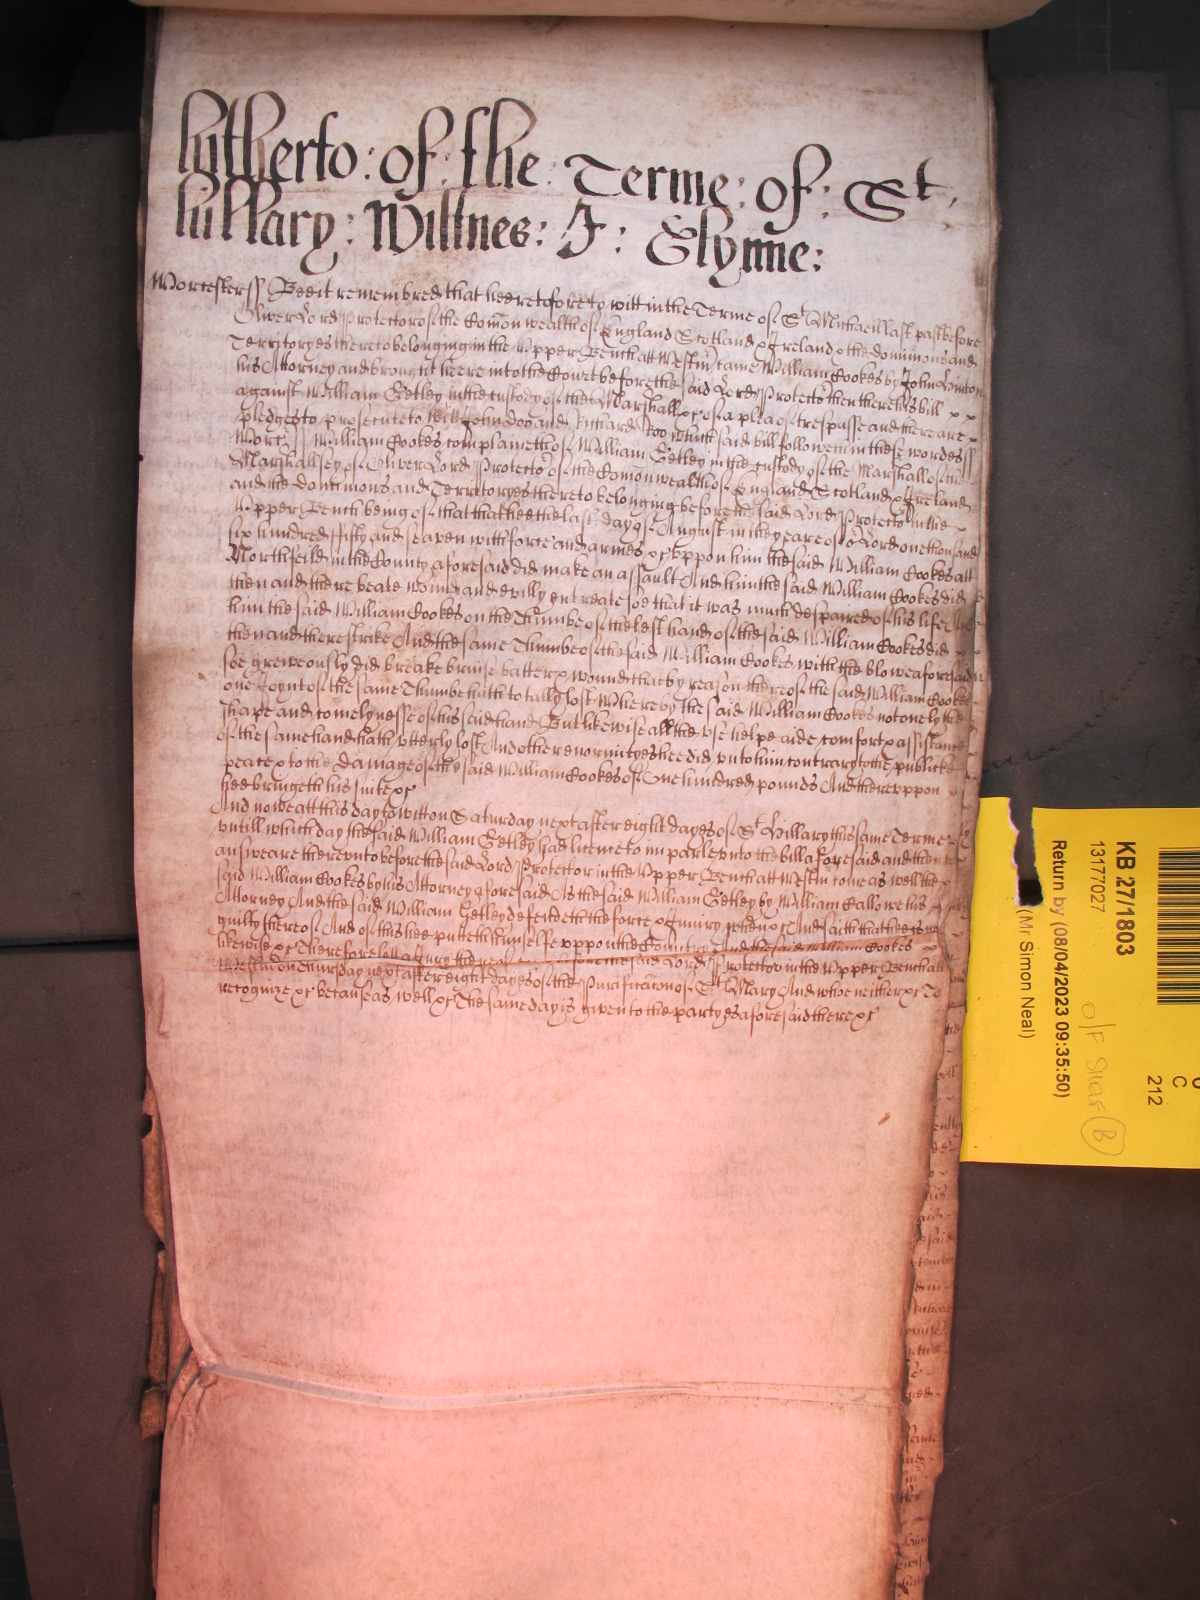 hitherto : of : the : Terme : of : St.
hillary : Wittnes : J : Glynne :
Worcester ss Bee it remembred that heeretofore to witt in the Terme of St Michaell last past before
Oliver Lord Protector of the Comon wealth of England Scotland & Ireland & the dominions and
Territoryes thereto belonging in the Upper Bench att Westm came William Cookes by John Hinton
his Attorney and brought heere into the Court before the said Lord Protector then there his bill x x
against William Getley in the custody of the Marshall &c of a plea of trespasse and there are x
pledges to prosecute to witt John Doo and Richard Roo which said bill followeth in these wordes ss
Worc ss William Cookes complaineth of William Getley in the custody of the Marshall of the
Marshallsey of Oliver Lord Protector of the Comon wealth of England Scotland & Ireland
and the dominions and Territoryes thereto belonging before the said Lord Protector in the x
Upper Bench being of that that hee the last day of August in the yeare of o Lord one thousand
six hundred fifty and seaven with force and armes &c uppon him the said William Cookes att
Northfeild in the County aforesaid did make an assault And him the said William Cookes did
then and there beate wound and evilly entreate soe that it was much despaired of his life And
him the said William Cookes on the Thumbe of the left hand of the said William Cookes did x
then and there strike And the same Thumbe of the said William Cookes with the blow aforesaid
soe greiveously did breake bruise batter & wound that by reason thereof the said William Cookes
one Joynt of the same Thumbe hath totally lost Whereby the said William Cookes not onely the
shape and comelynesse of his said hand But likewise all the use helpe aide comfort & assistance
of the same hand hath utterly lost And other enormityes hee did unto him contrary to the publicke
peace & to the damage of the said William Cookes of One hundred pounds And thereuppon
hee bringeth his suite &c
And now att this day to witt on Saturday next after eight dayes of St Hillary this same Terme
untill which day the said William Getley had licence to imparle unto the bill aforesaid and then to
answeare thereunto before the said Lord Protector in the Upper Bench att Westm come as well the
said William Cookes by his Attorney aforesaid As the said William Getley by William Gallowe his
Attorney And the said William Getley defendeth the force & Iniury when &c And saith that hee is not
guilty thereof And of this hee putteth himselfe uppon the Country And the said William Cookes
likewise &c Therefore lett a Jury thereof come before the said Lord Protector in the Upper Bench att
Westm on Thursday next after eight dayes of the Purificacon of St Mary And who neither &c To
recognize &c because as well &c The same day is given to the partyes aforesaid there &c
KB 27/1803
13177027
Return by (08/04/2023 09:35:50)
(Mr Simon Neal)
C
212
B